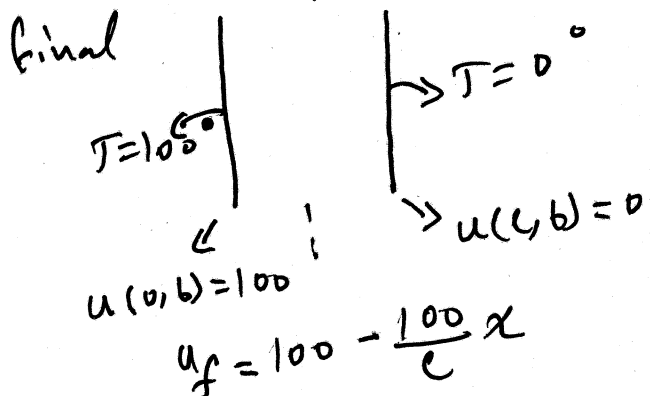 final
T=100°
T=0°
u(0,t)=100
u(l,t)=0
u_f = 100 - \frac{100}{l} x